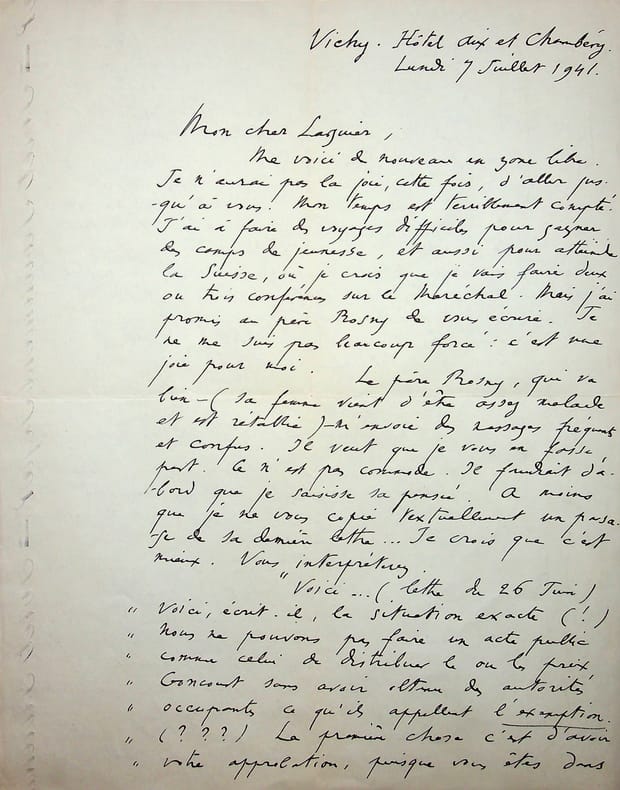 Vichy. Hôtel Aix et Chambéry.
Lundi 7 Juillet 1941.
Mon cher Larguier,
Me voici de nouveau en zone libre.
Je n'aurai pas la joie, cette fois, d'aller jus-
qu'à vous. Mon temps est terriblement compté.
J'ai à faire des voyages difficiles pour gagner
des camps de jeunesse, et aussi pour atteindre
la Suisse, où je crois que je vais faire deux
ou trois conférences sur le Maréchal. Mais j'ai
promis au père Rosny de vous écrire. Je
ne me suis pas beaucoup forcé : c'est une
joie pour moi. Le père Rosny, qui va
bien - (sa femme vient d'être assez malade
et est rétablie) - m'envoie des messages fréquents
et confus. Il veut que je vous en fasse
part. Ce n'est pas commode. Il faudrait d'a-
bord que je saisisse sa pensée. A moins
que je ne vous copie textuellement un passa-
ge de sa dernière lettre... Je crois que c'est
mieux. Vous interpréterez.
" Voici ... (lettre du 26 Juin)
" Voici, écrit-il, la situation exacte (!)
" Nous ne pouvons pas faire un acte public
" comme celui de distribuer le ou les prix
" Goncourt sans avoir obtenu des autorités
" occupantes ce qu'ils appellent l'exemption.
" (???) La première chose c'est d'avoir
" votre approbation, puisque vous êtes dans